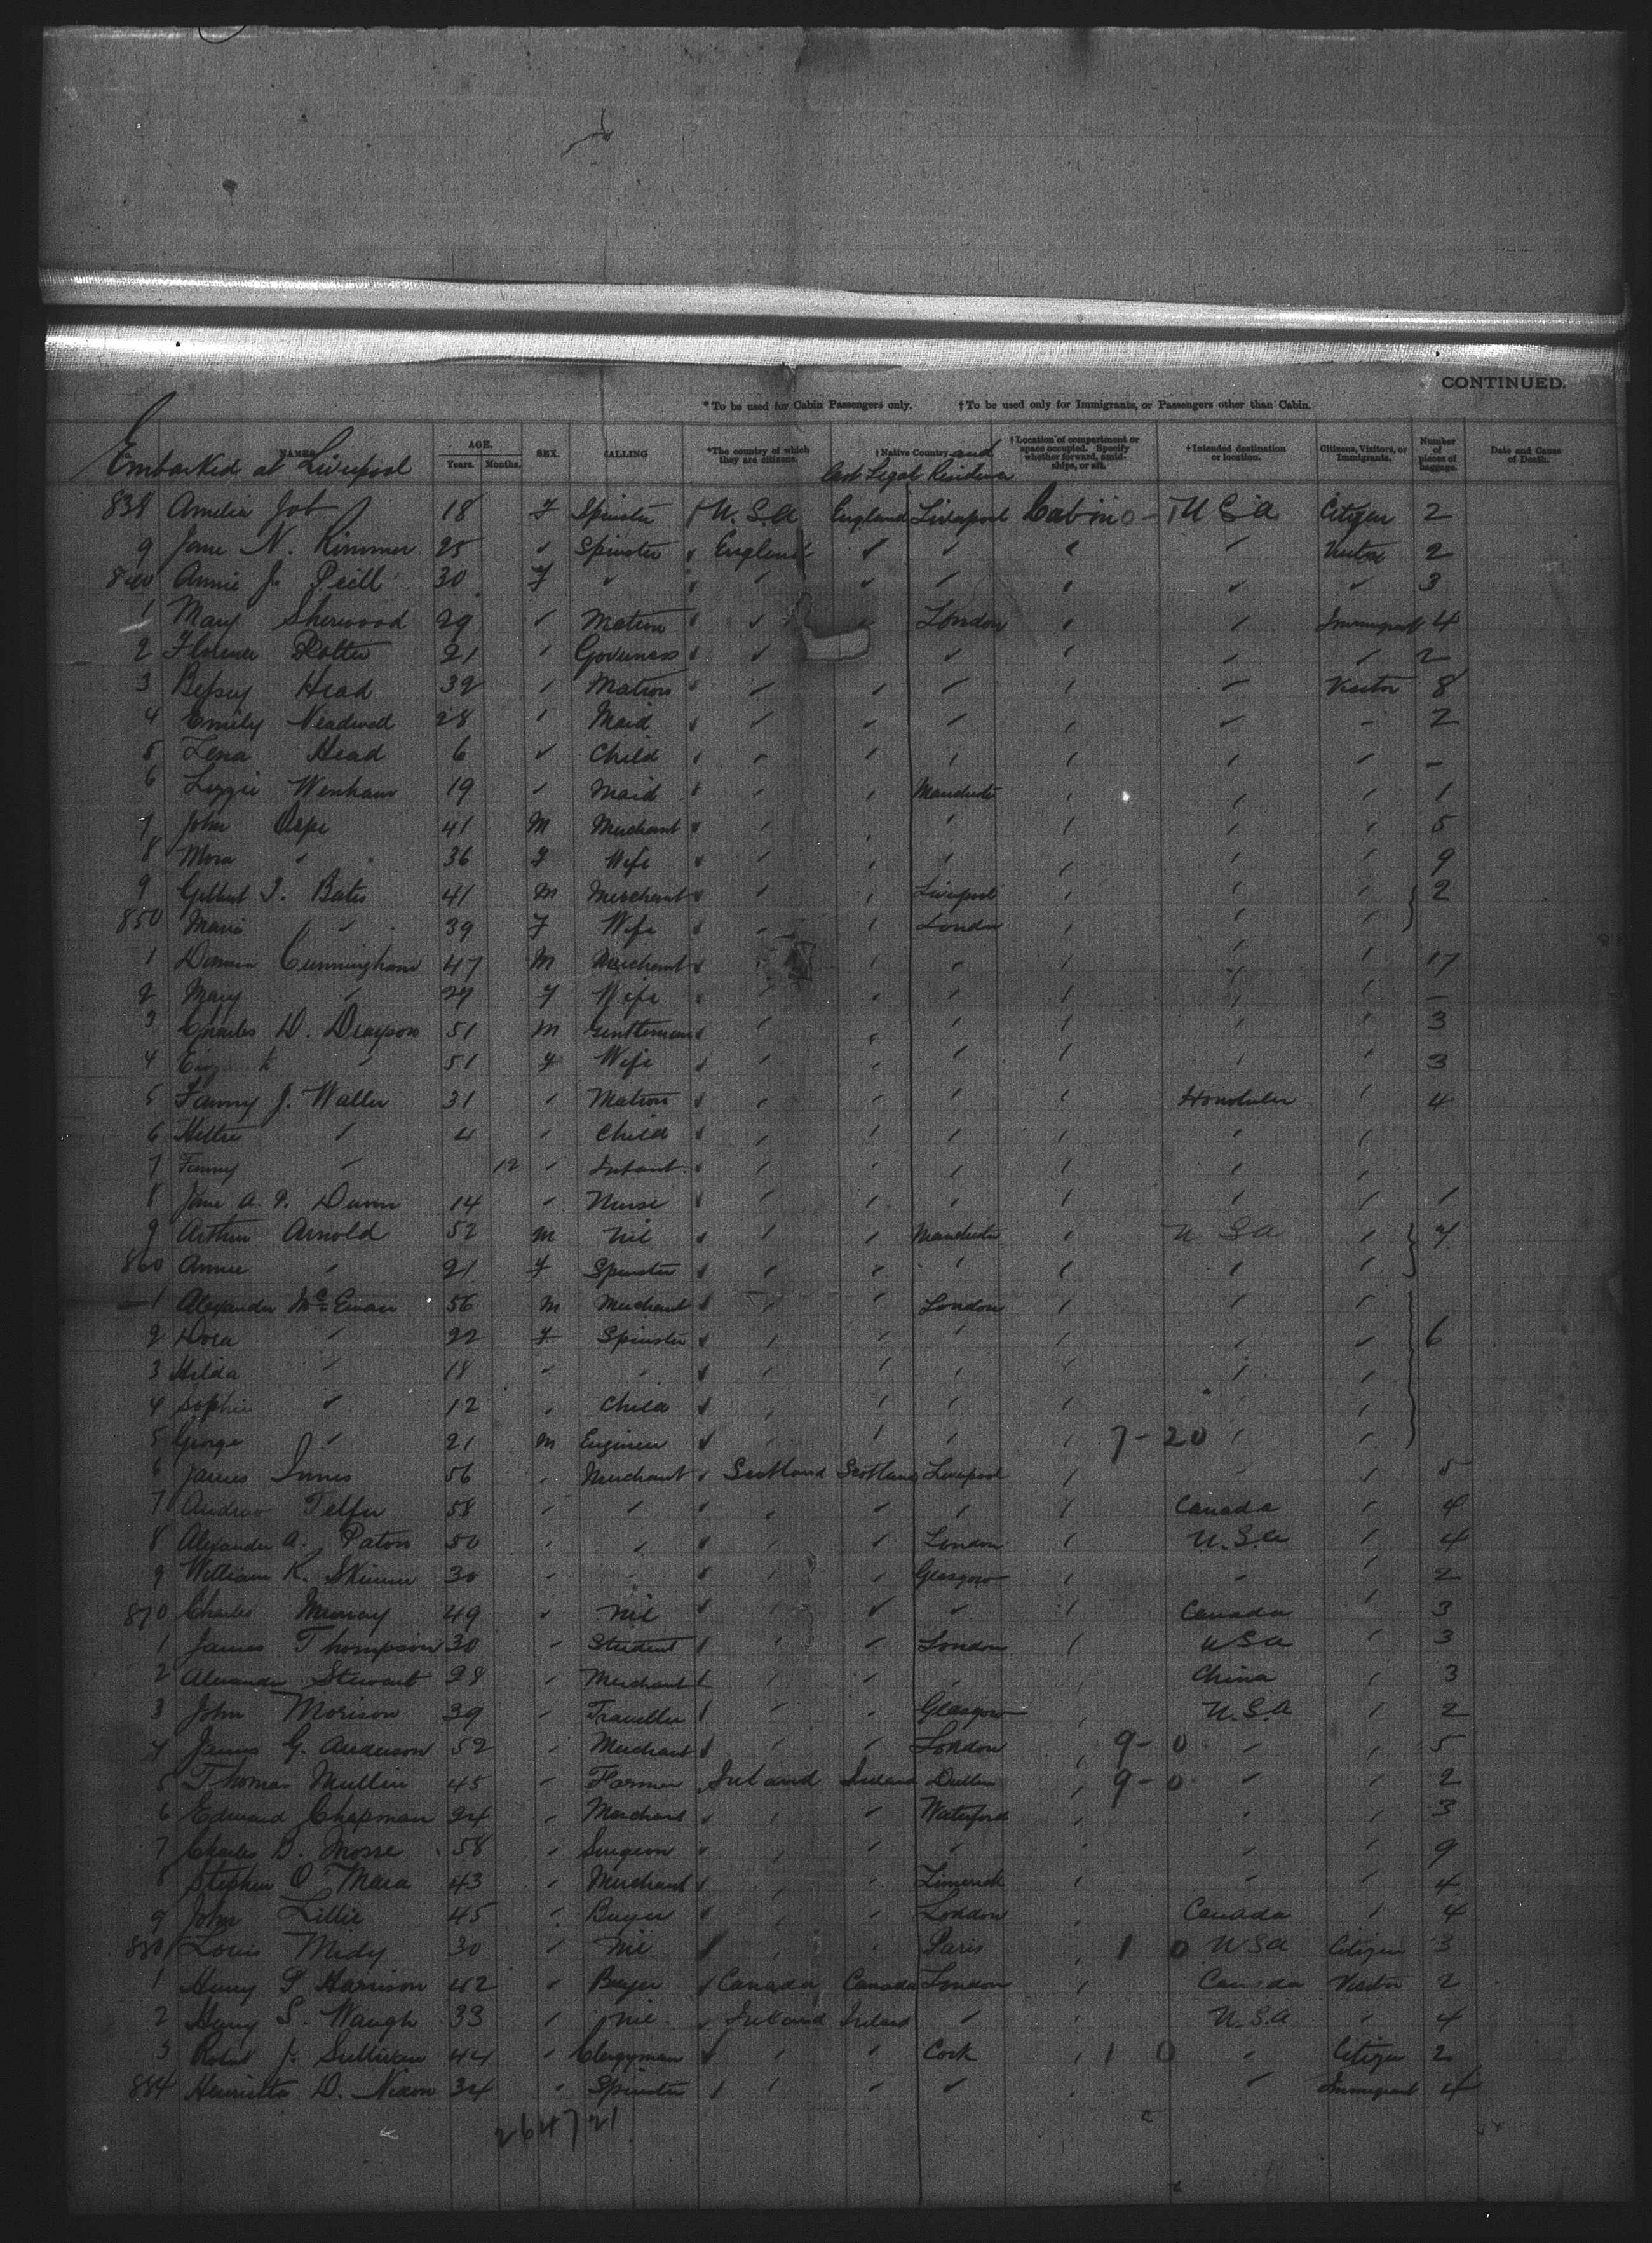 CONTINUED.
*To be used for Cabin Passengers only. †To be used only for Immigrants, or Passengers other than Cabin.
NAMES AGE. Years. Months. SEX. CALLING *The country of which they are citizens. †Native Country and Last Legal Residence †Location of compartment or space occupied. Specify whether forward, amidships, or aft. †Intended destination or location. Citizens, Visitors, or Immigrants. Number of pieces of baggage. Date and Cause of Death.
Embarked at Liverpool
838 Amelia Job 18 F Spinster U.S.A England Liverpool Cabin U S A Citizen 2
9 Jane N. Rimmer 25 " Spinster " England " " " " Visitor 2
840 Annie J. Peill 30 F " " " " " " " " 3
1 Mary Sherwood 29 " Matron " " " London " " Immigrant 4
2 Florence 21 " Governess " " " " " " 2
3 Betsey Head 32 " Matron " " " " " " Visitor 8
4 Emily 28 " Maid " " " " " " " 2
5 Lena Head 6 " Child " " " " " " " –
6 Lizzie Wenham 19 " Maid " " " Manchester " " " 1
7 John 41 M Merchant " " " " " " " 5
8 " 36 F Wife " " " " " " " 9
9 Gilbert Bates 41 M Merchant " " " Liverpool " " " 2
850 Marie " 39 F Wife " " " London " " "
1 Cunningham 47 M Merchant " " " " " " " 17
2 Mary " 29 F Wife " " " " " " " –
3 Charles D. Drayson 51 M Gentleman " " " " " " " 3
4 " 51 F Wife " " " " " " " 3
5 Fanny J. Waller 31 " Matron " " " " " Honolulu " 4
6 Hettie " 4 " Child " " " " " " "
7 Fanny " 12 " Infant " " " " " " "
8 Jane A. Dunn 14 " Nurse " " " " " " " 1
9 Arthur Arnold 52 M Nil " " " Manchester " U S A " 4
860 Annie " 21 F Spinster " " " " " " "
1 Alexander McEwan 56 M Merchant " " " London " " "
2 Dora " 22 F Spinster " " " " " " " 6
3 Hilda " 18 " " " " " " " " "
4 Sophie " 12 " Child " " " " " " "
5 George " 21 M Engineer " " " " " 7-20 " "
6 James Innes 56 " Merchant " Scotland Scotland Liverpool " " " 5
7 Andrew Telfer 58 " " " " " " " Canada " 4
8 Alexander A. Paton 50 " " " " " London " U.S.A " 4
9 William K. Skinner 30 " " " " " Glasgow " " " 2
870 Charles Murray 49 " Nil " " " " " Canada " 3
1 James Thompson 30 " Student " " " London " U S A " 3
2 Alexander Stewart 28 " Merchant " " " " " China " 3
3 John Morison 39 " Traveller " " " Glasgow " U.S.A " 2
4 James G. Anderson 52 " Merchant " " " London " 9-0 " " 5
5 Thomas Mullin 45 " Farmer Ireland Ireland Dublin " 9-0 " " 2
6 Edward Chapman 24 " Merchant " " " Waterford " " " 3
7 Charles B. Mosse 58 " Surgeon " " " " " " " 9
8 Stephen O'Mara 43 " Merchant " " " Limerick " " " 4
9 John Lillie 45 " Buyer " " " London " Canada " 4
880 Louis Midy 30 " Nil " " " Paris " 1 0 U S A Citizen 3
1 Henry P Harrison 42 " Buyer " Canada Canada London " Canada Visitor 2
2 Henry S. Waugh 33 " Nil " Ireland Ireland " " U.S.A " 4
3 Robert J. Sullivan 44 " Clergyman " " " Cork " 1 0 " Citizen 2
884 Henrietta D. Nixon 34 " Spinster " " " " " " Immigrant 4
264721